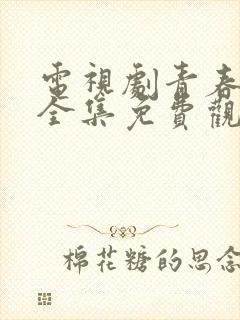 電視劇青春
全集免費觀
棉花糖的思念